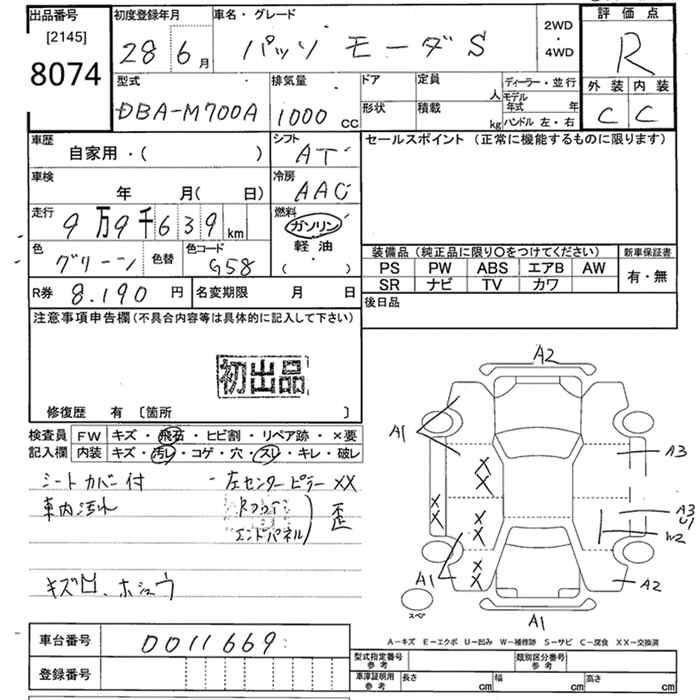 出品番号
[2145]
8074
初度登録年月
28 6月
車名・グレード
パッソ モーダS
2WD
・
4WD
評価点
R
外装 内装
C C
型式
DBA-M700A
排気量
1000 cc
ドア
形状
定員
人
積載
kg
ディーラー・並行
モデル年式 年
ハンドル 左・右
車歴
自家用・( )
シフト
AT
セールスポイント (正常に機能するものに限ります)
車検
年 月( 日)
冷房
AAC
走行
9万9千639km
燃料
ガソリン
軽油
( ・ )
色
グリーン
色替
色コード
G58
装備品 (純正品に限り○をつけてください)
PS PW ABS エアB AW
SR ナビ TV カワ
新車保証書
有・無
R券 8.190 円
名変期限 月 日
後日品
注意事項申告欄 (不具合内容等は具体的に記入して下さい)
初出品
修復歴 有 〔箇所 〕
検査員記入欄
FW キズ・飛石・ヒビ割・リペア跡・×要
内装 キズ・汚レ・コゲ・穴・スレ・キレ・破レ
シートカバー付
車内汚れ
・左センターピラーXX
エンドパネル) 歪
キズ凹、ホシュウ
A2
A1
A3
A3
U1
W2
A1
A2
A1
XX
XX
XX
XX
スペア
A-キズ E-エクボ U-凹み W-補修跡 S-サビ C-腐食 XX-交換済
車台番号
0011669
登録番号
型式指定番号
参考
類別区分番号
参考
車庫証明用
参考
長さ cm
幅 cm
高さ cm